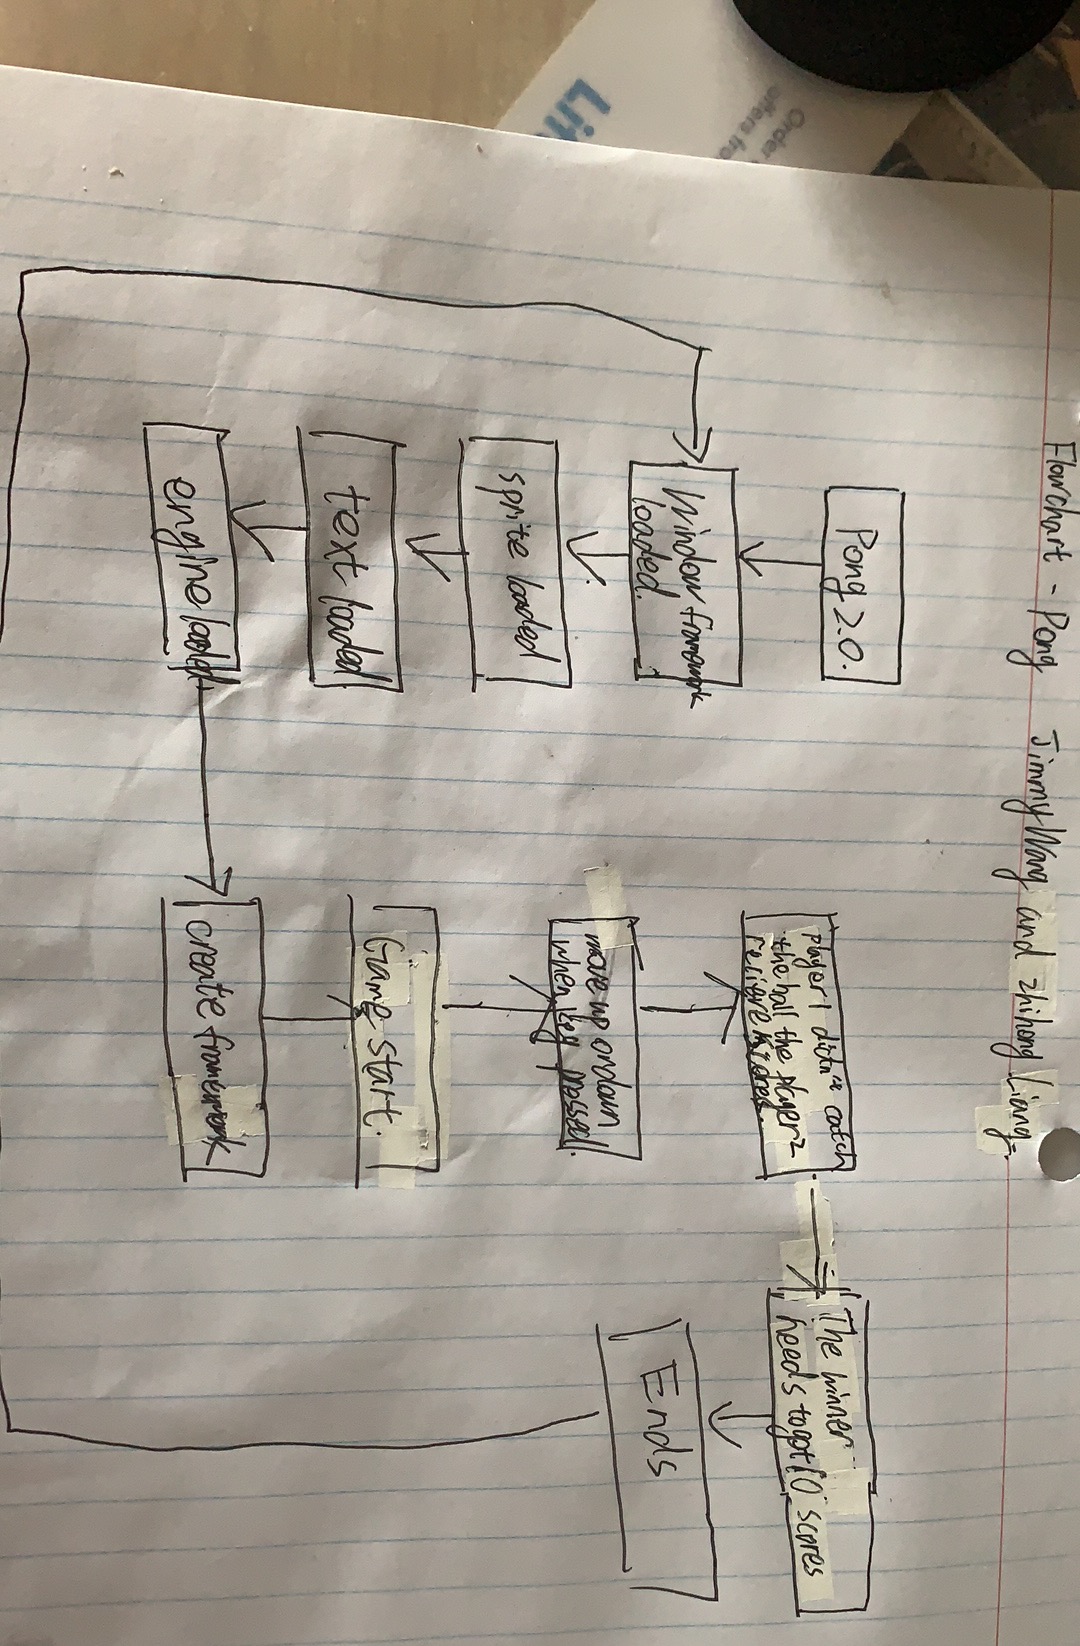 Flowchart - Pong Jimmy Wang and zhihong Liang.
Pong 2.0.
Window framework
loaded.
sprite loaded
text loaded
engine loaded
create framework
Game start.
move up or down
when key pressed.
player 1 didn't catch
the ball the player 2
The winner
needs to got 10 scores
Ends
Order
offers fro